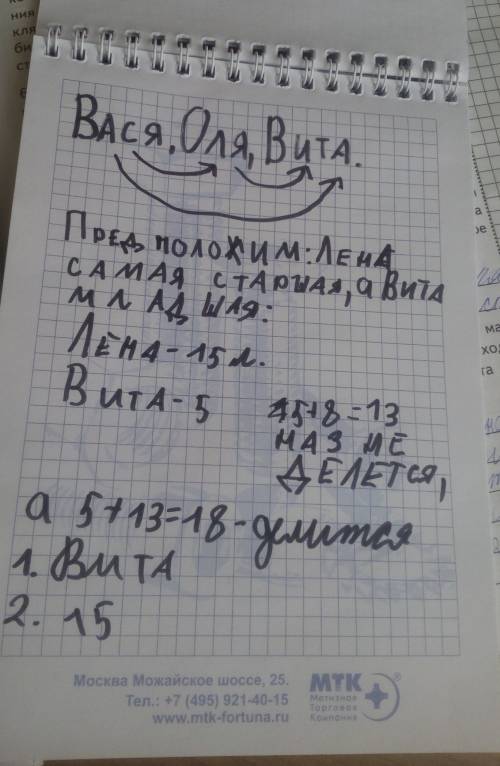 Вася, Оля, Вита.
Предположим: Лена
самая старшая, а Вита
младшля:
Лена - 15 л.
Вита - 5 5+8=13
на 3 не
делется,
а 5+13=18 - делится
1. Вита
2. 15
Москва Можайское шоссе, 25.
Тел.: +7 (495) 921-40-15
www.mtk-fortuna.ru
МТК
®
Метизная
Торговая
Компания